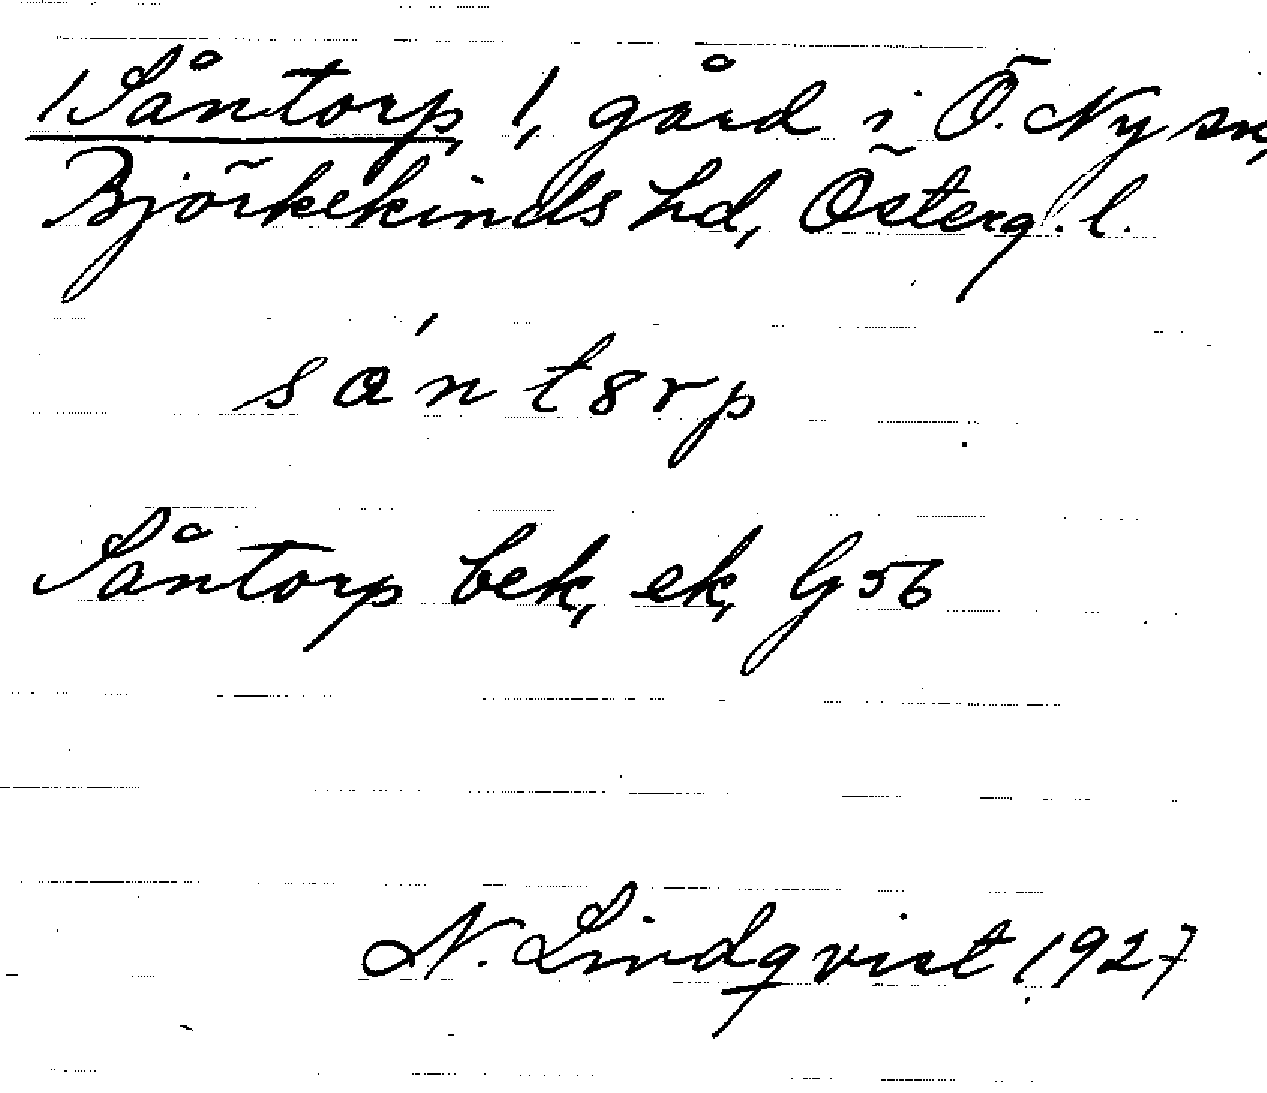 /Såntorp, /, gård i Ö. Ny sn,
Björkekinds hd, Österg. l.
sɑ́nt8rp
Såntorp bek, ek, G 56
N. Lindqvist 1927